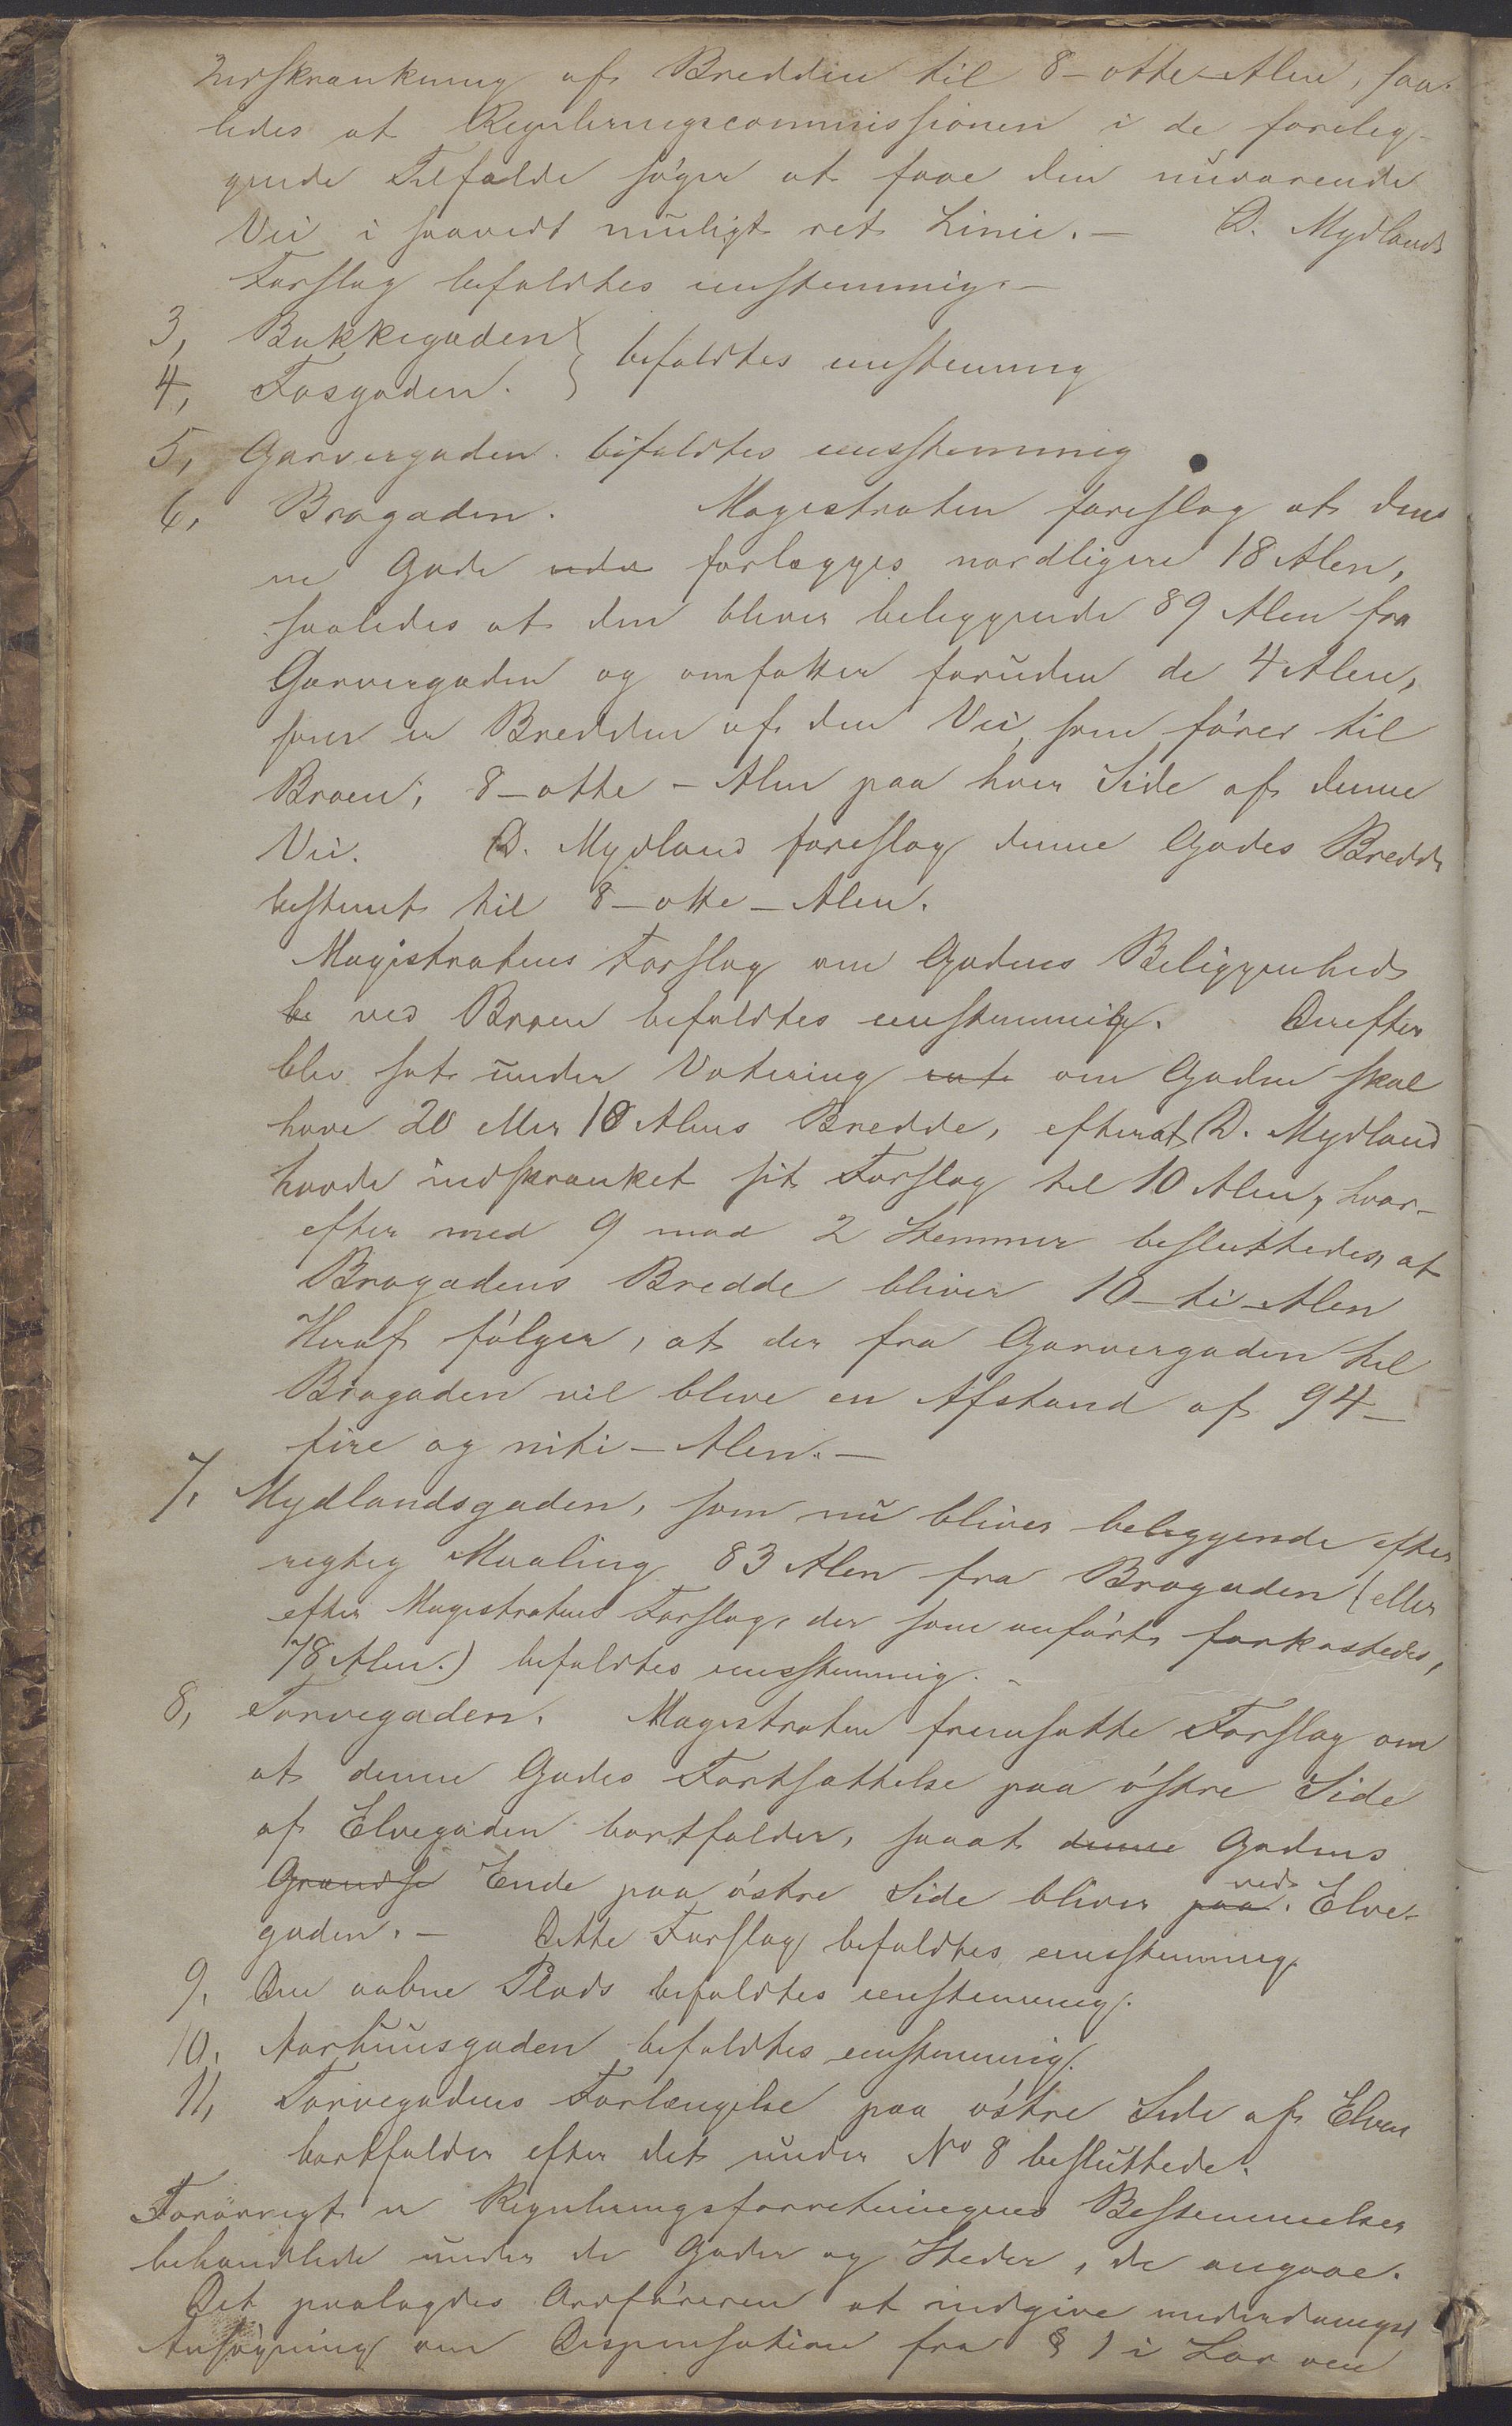 Indskrænkning af Bredden til 8 - otte - Alen, saa-
ledes at Reguleringscommissionen i de forelig-
gende Tilfælde søger at faae den nuværende
Vei i saavidt muligt ret Linie. - D. Mydlands
Forslag bifaldtes enstemmig. -
3, Bakkegaden } bifaldtes enstemmig
4, Fosgaden.
5, Garvergaden. bifaldtes eensstemmig
6, Brogaden. Magistraten foreslog at den-
ne Gade forlægges nordligere 18 Alen,
saaledes at den bliver beliggende 89 Alen fra
Garvergaden og omfatter foruden de 4 Alen,
som er Bredden af den Vei, som fører til
Broen, 8 - otte - Alen paa hver Side af denne
Vei. D. Mydland foreslog denne Gades Bredde
bestemt til 8 - otte - Alen.
Magistratens Forslag om Gadens Beliggenhed
be ved Broen bifaldtes eenstemmig. Derefter
blev sat under Votering om Gaden skal
have 20 eller 10 Alens Bredde, efterat D. Mydland
havde indskrænket sit Forslag til 10 Alen, hvor-
efter med 9 mod 2 Stemmer besluttedes, at
Brogadens Bredde bliver 10 - ti - Alen
Heraf følger, at der fra Garvergaden til
Brogaden vil blive en Afstand af 94 -
fire og niti - Alen. -
7, Mydlandsgaden, som nu bliver beliggende efter
rigtig Maaling 83 Alen fra Brogaden (eller
efter Magistratens Forslag, der som anført, forkastedes,
78 Alen.) bifaldtes eensstemmig. -
8, Torvegaden. Magistraten fremsatte Forslag om
at denne Gades Fortsættelse paa østre Side
af Elvegaden bortfalder, saaat denne Gadens
Grændse Ende paa østre Side bliver paa ved Elve-
gaden. - Dette Forslag bifaldtes eensstemmig.
9, Den aabne Plads bifaldtes eenstemmig.
10, Aarhuusgaden bifaldtes eenstemmig.
11, Torvegadens Forlængelse paa østre Side af Elven
bortfalder efter det under No 8 besluttede.
Forøvrigt er Reguleringsforretningens Bestemmelser
behandlede under de Gader og Steder, de angaae.
Det paalagdes Ordføreren at indgive underdanigst
Ansøgning om Dispensation fra § 1 i Lov om